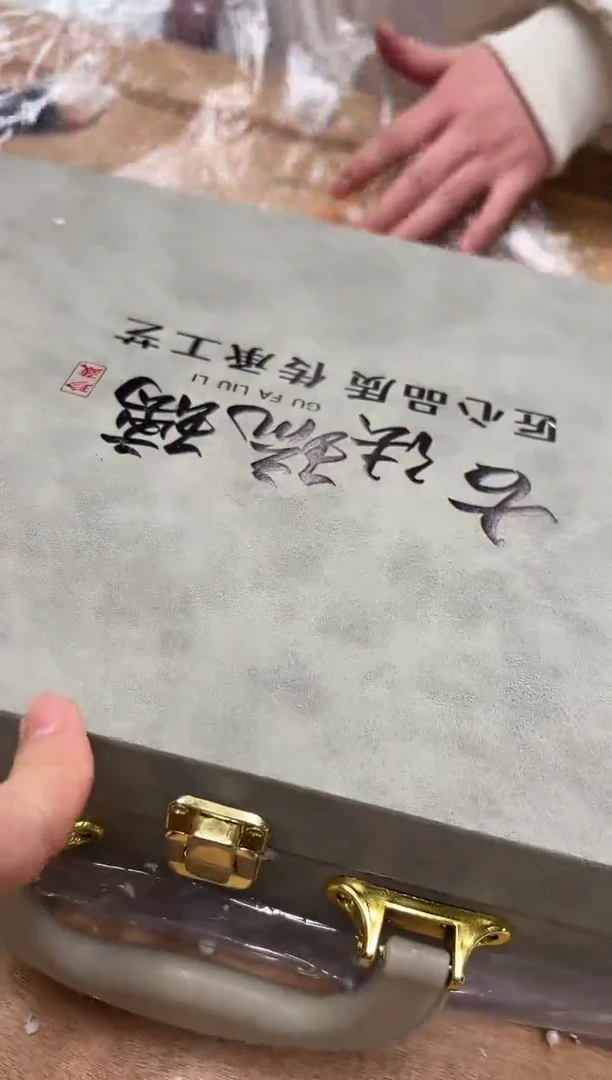 古法琉璃
GU FA LIU LI
匠心品质 传承工艺
珍藏